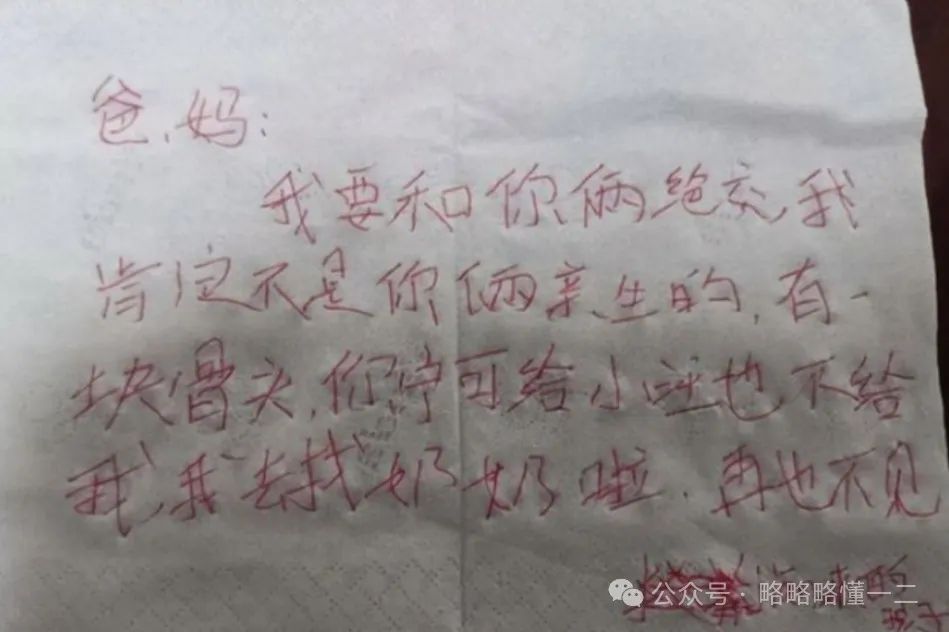 爸、妈：
我要和你俩绝交，我
肯定不是你俩亲生的，有一
块骨头，你宁可给小旺也不给
我，我去找奶奶啦，再也不见
来的
孩子
公众号·略略略懂一二